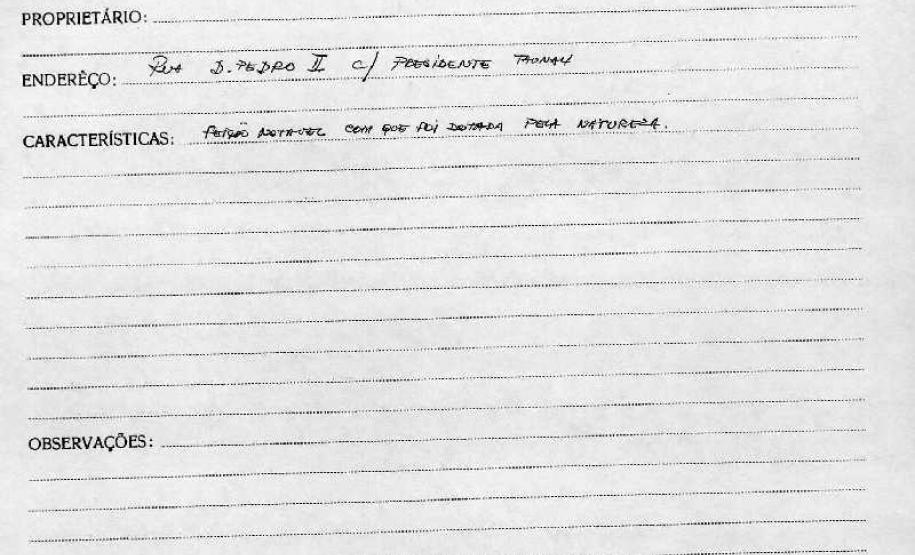 PROPRIETÁRIO:
ENDERÊÇO: RUA D. PEDRO II C/ PRESIDENTE
CARACTERÍSTICAS: FEIÇÃO NOTAVEL COM QUE FOI DOTADA PELA NATUREZA.
OBSERVAÇÕES: